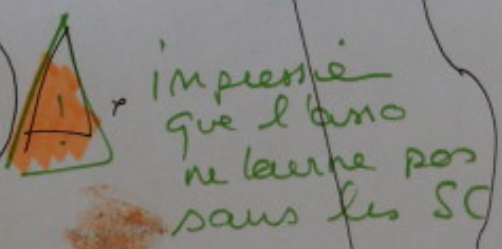 !
impression
que l'asso
ne tourne pas
sans les SC